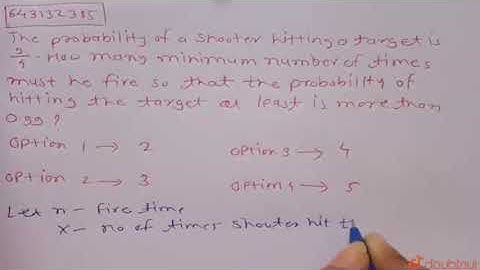 643132385
The probability of a shooter hitting a target is
3/4. How many minimum number of times
must he fire so that the probability of
hitting the target at least is more than
0.99?
OPtion 1 → 2
OPtion 3 → 4
OPtion 2 → 3
OPtion 4 → 5
Let n - fire time
X - no of times shooter hit t
doubtnut